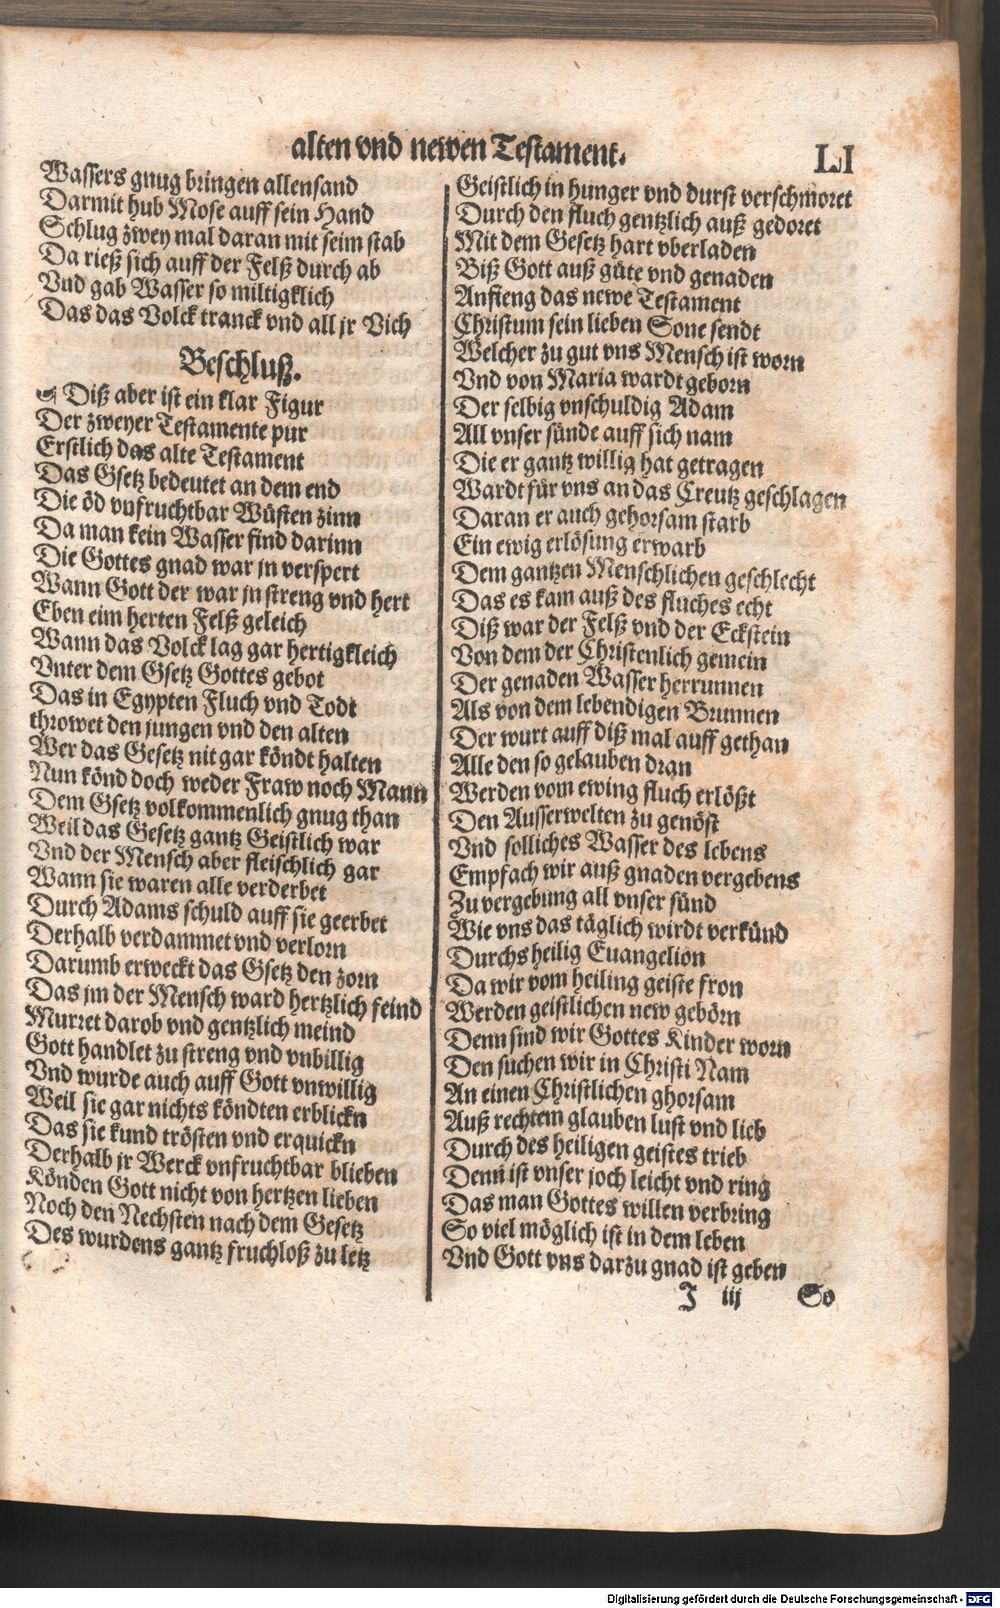 alten vnd newen Testament.
LI
Wassers gnug bringen allensand
Darmit hub Mose auff sein Hand
Schlug zwey mal daran mit seim stab
Da rieß sich auff der Felß durch ab
Vnd gab Wasser so miltigklich
Das das Volck tranck vnd all jr Vich
Beschluß.
☞ Diß aber ist ein klar Figur
Der zweyer Testamente pur
Erstlich das alte Testament
Das Gsetz bedeutet an dem end
Die öd vnfruchtbar Wüsten zinn
Da man kein Wasser find darinn
Die Gottes gnad war jn verspert
Wann Gott der war jn streng vnd hert
Eben eim herten Felß geleich
Wann das Volck lag gar hertigkleich
Vnter dem Gsetz Gottes gebot
Das in Egypten Fluch vnd Todt
throwet den jungen vnd den alten
Wer das Gesetz nit gar köndt halten
Nun könd doch weder Fraw noch Mann
Dem Gsetz volkommenlich gnug than
Weil das Gesetz gantz Geistlich war
Vnd der Mensch aber fleischlich gar
Wann sie waren alle verderbet
Durch Adams schuld auff sie geerbet
Derhalb verdammet vnd verlorn
Darumb erweckt das Gsetz den zorn
Das jm der Mensch ward hertzlich feind
Murret darob vnd gentzlich meind
Gott handlet zu streng vnd vnbillig
Vnd wurde auch auff Gott vnwillig
Weil sie gar nichts köndten erblickn
Das sie kund trösten vnd erquickn
Derhalb jr Werck vnfruchtbar blieben
Könden Gott nicht von hertzen lieben
Noch den Nechsten nach dem Gesetz
Des wurdens gantz fruchloß zu letz
Geistlich in hunger vnd durst verschmoret
Durch den fluch gentzlich auß gedoret
Mit dem Gesetz hart vberladen
Biß Gott auß güte vnd genaden
Anfieng das newe Testament
Christum sein lieben Sone sendt
Welcher zu gut vns Mensch ist worn
Vnd von Maria wardt geborn
Der selbig vnschuldig Adam
All vnser sünde auff sich nam
Die er gantz willig hat getragen
Wardt für vns an das Creutz geschlagen
Daran er auch gehorsam starb
Ein ewig erlösung erwarb
Dem gantzen Menschlichen geschlecht
Das es kam auß des fluches echt
Diß war der Felß vnd der Eckstein
Von dem der Christenlich gemein
Der genaden Wasser herrunnen
Als von dem lebendigen Brunnen
Der wurt auff diß mal auff gethan
Alle den so gelauben dran
Werden vom ewing fluch erlößt
Den Ausserwelten zu genöst
Vnd solliches Wasser des lebens
Empfach wir auß gnaden vergebens
Zu vergebung all vnser sünd
Wie vns das täglich wirdt verkünd
Durchs heilig Euangelion
Da wir vom heiling geiste fron
Werden geistlichen new gebörn
Denn sind wir Gottes Kinder worn
Den suchen wir in Christi Nam
An einen Christlichen ghorsam
Auß rechtem glauben lust vnd lieb
Durch des heiligen geistes trieb
Denn ist vnser joch leicht vnd ring
Das man Gottes willen verbring
So viel möglich ist in dem leben
Vnd Gott vns darzu gnad ist geben
J iij
So
Digitalisierung gefördert durch die Deutsche Forschungsgemeinschaft - DFG